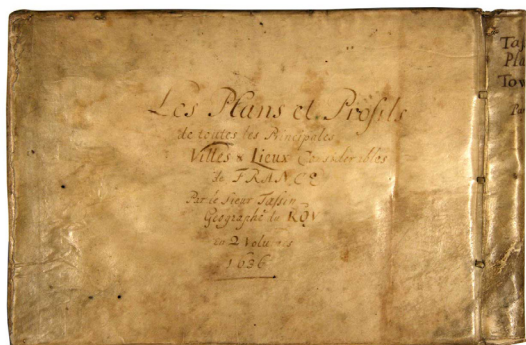 Les Plans et Profils
de toutes les Principales
Villes & Lieux Considerables
de FRANCE
Par le Sieur Tassin
Geographe du ROY
in 2 Volumes
1636
Tow